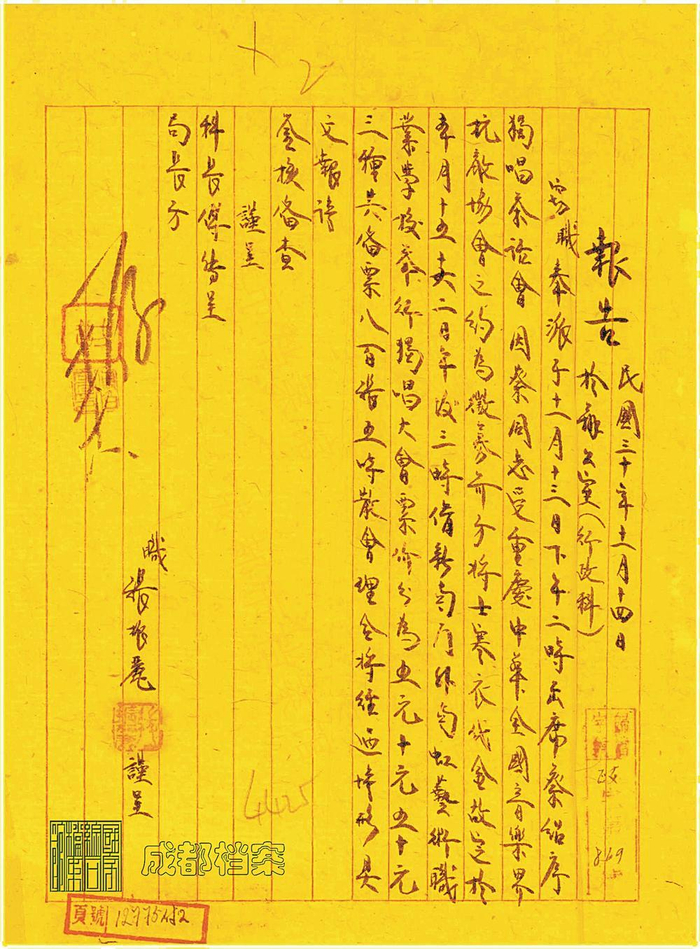 報告 民國三十年十一月十四日
於辦公室(行政科)
竊職奉派于十一月十三日下午二時出席蔡紹序
獨唱茶話會因蔡同志受重慶中華全國音樂界
抗敵協會之約為徵募前方將士寒衣代金故定於
本月十五十六二日午後三時借新南門外南虹藝術職
業學校舉行獨唱大會票價分為五元十元五十元
三種共備票八百張五時散會理合將經過情形具
文報請
鑒核備查
謹呈
科長 轉呈
局長方
職 張振麗 謹呈
4425
政
819
成都档案
頁號 127